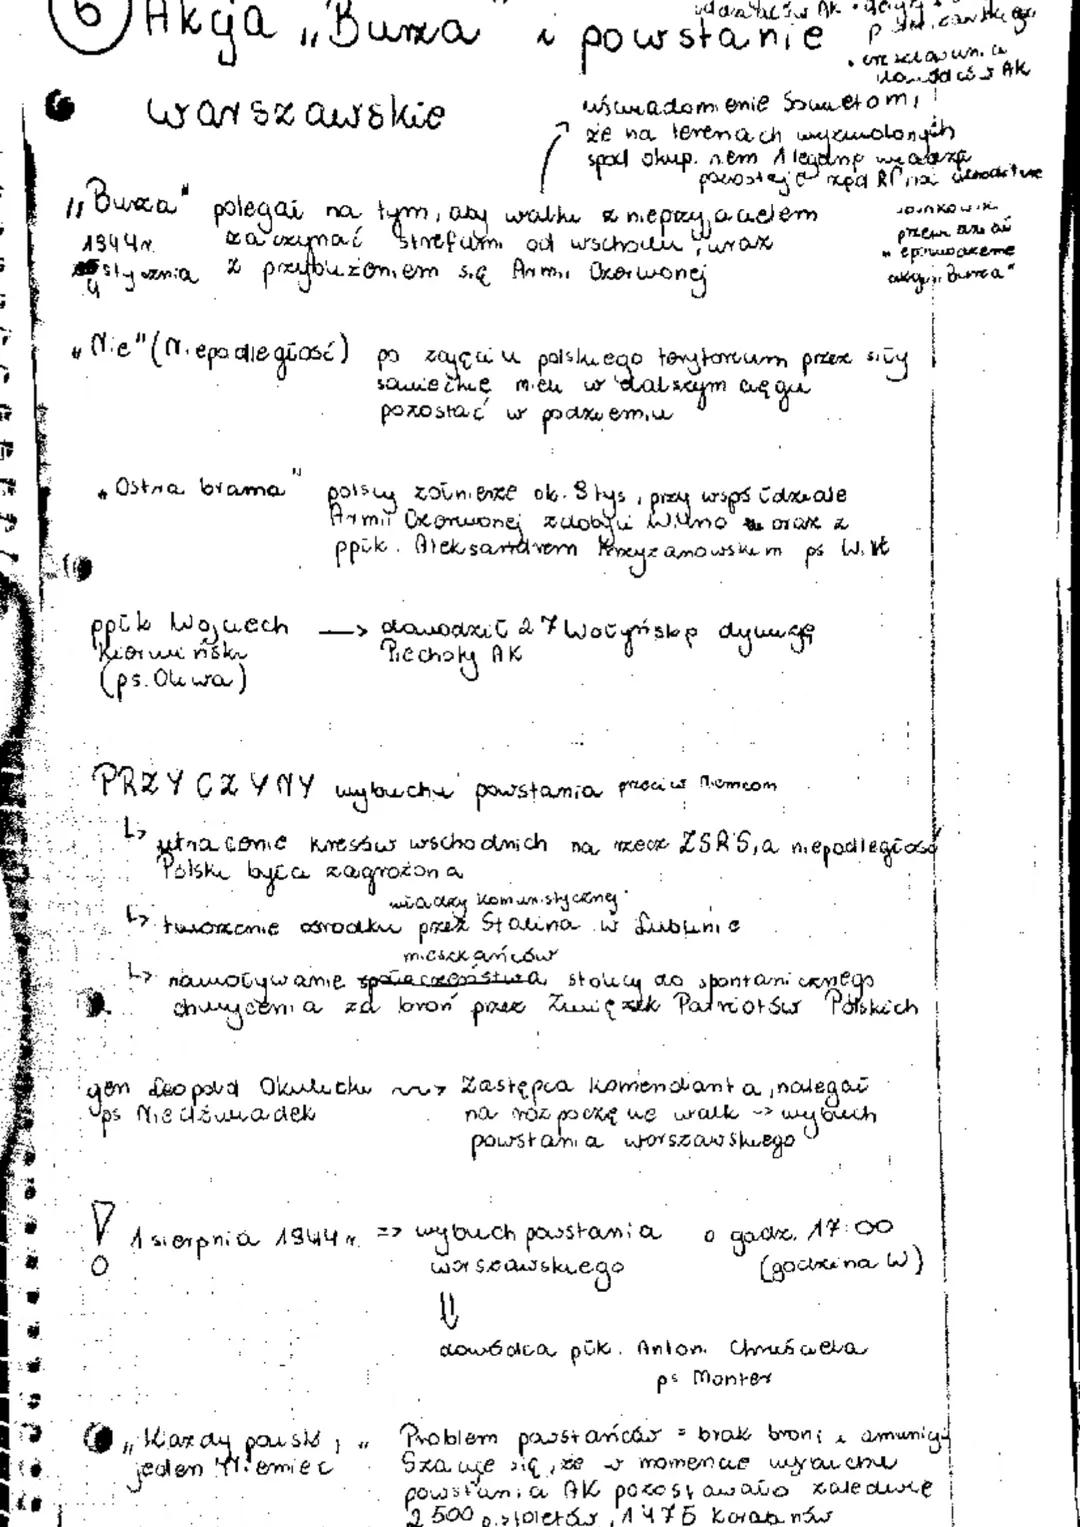 6 Akcja „Burza" i powstanie
warszawskie
oddziałów AK
dowódców AK
uświadomienie Sowietom,
że na terenach wyzwolonych
spod okup. niem legalną władzą
pozostaje rząd RP na uchodźctwie
przew
wprowadzenie
akcji „Burza"
„Burza" polegał na tym, aby walkę z nieprzyjacielem
1944r. zaczynać strefami od wschodu, wraz
stycznia z przybliżeniem się Armii Czerwonej
„Nie" (Niepodległość) po zajęciu polskiego terytorium przez siły
sowieckie mieli w dalszym ciągu
pozostać w podziemiu
„Ostra brama" polscy żołnierze ok. 9 tys, przy współudziale
Armii Czerwonej zdobyli Wilno oraz z
ppłk. Aleksandrem Krzyżanowskim ps Wilk
ppłk Wojciech —> dowodził 27 Wołyńską dywizją
Kiwerński Piechoty AK
(ps. Oliwa)
PRZYCZYNY wybuchu powstania przeciw Niemcom
↳ utracenie kresów wschodnich na rzecz ZSRS, a niepodległość
Polski była zagrożona
władzy komunistycznej
↳ tworzenie ośrodku przez Stalina w Lublinie
mieszkańców
↳ nawoływanie społeczeństwa stolicy do spontanicznego
chwycenia za broń przez Związek Patriotów Polskich
gen Leopold Okulicki ~> Zastępca komendanta, nalegał
ps Niedźwiadek na rozpoczęcie walk -> wybuch
powstania warszawskiego
! 1 sierpnia 1944 r. => wybuch powstania o godz. 17:00
warszawskiego (godzina W)
⇓
dowódca płk. Antoni Chruściela
ps Monter
„Każdy pocisk, „ Problem powstańców = brak broni i amunicji
jeden Niemiec Szacuje się, że w momencie wybuchu
powstania AK pozostawało zaledwie
2 500 pistoletów, 1 475 karabinów